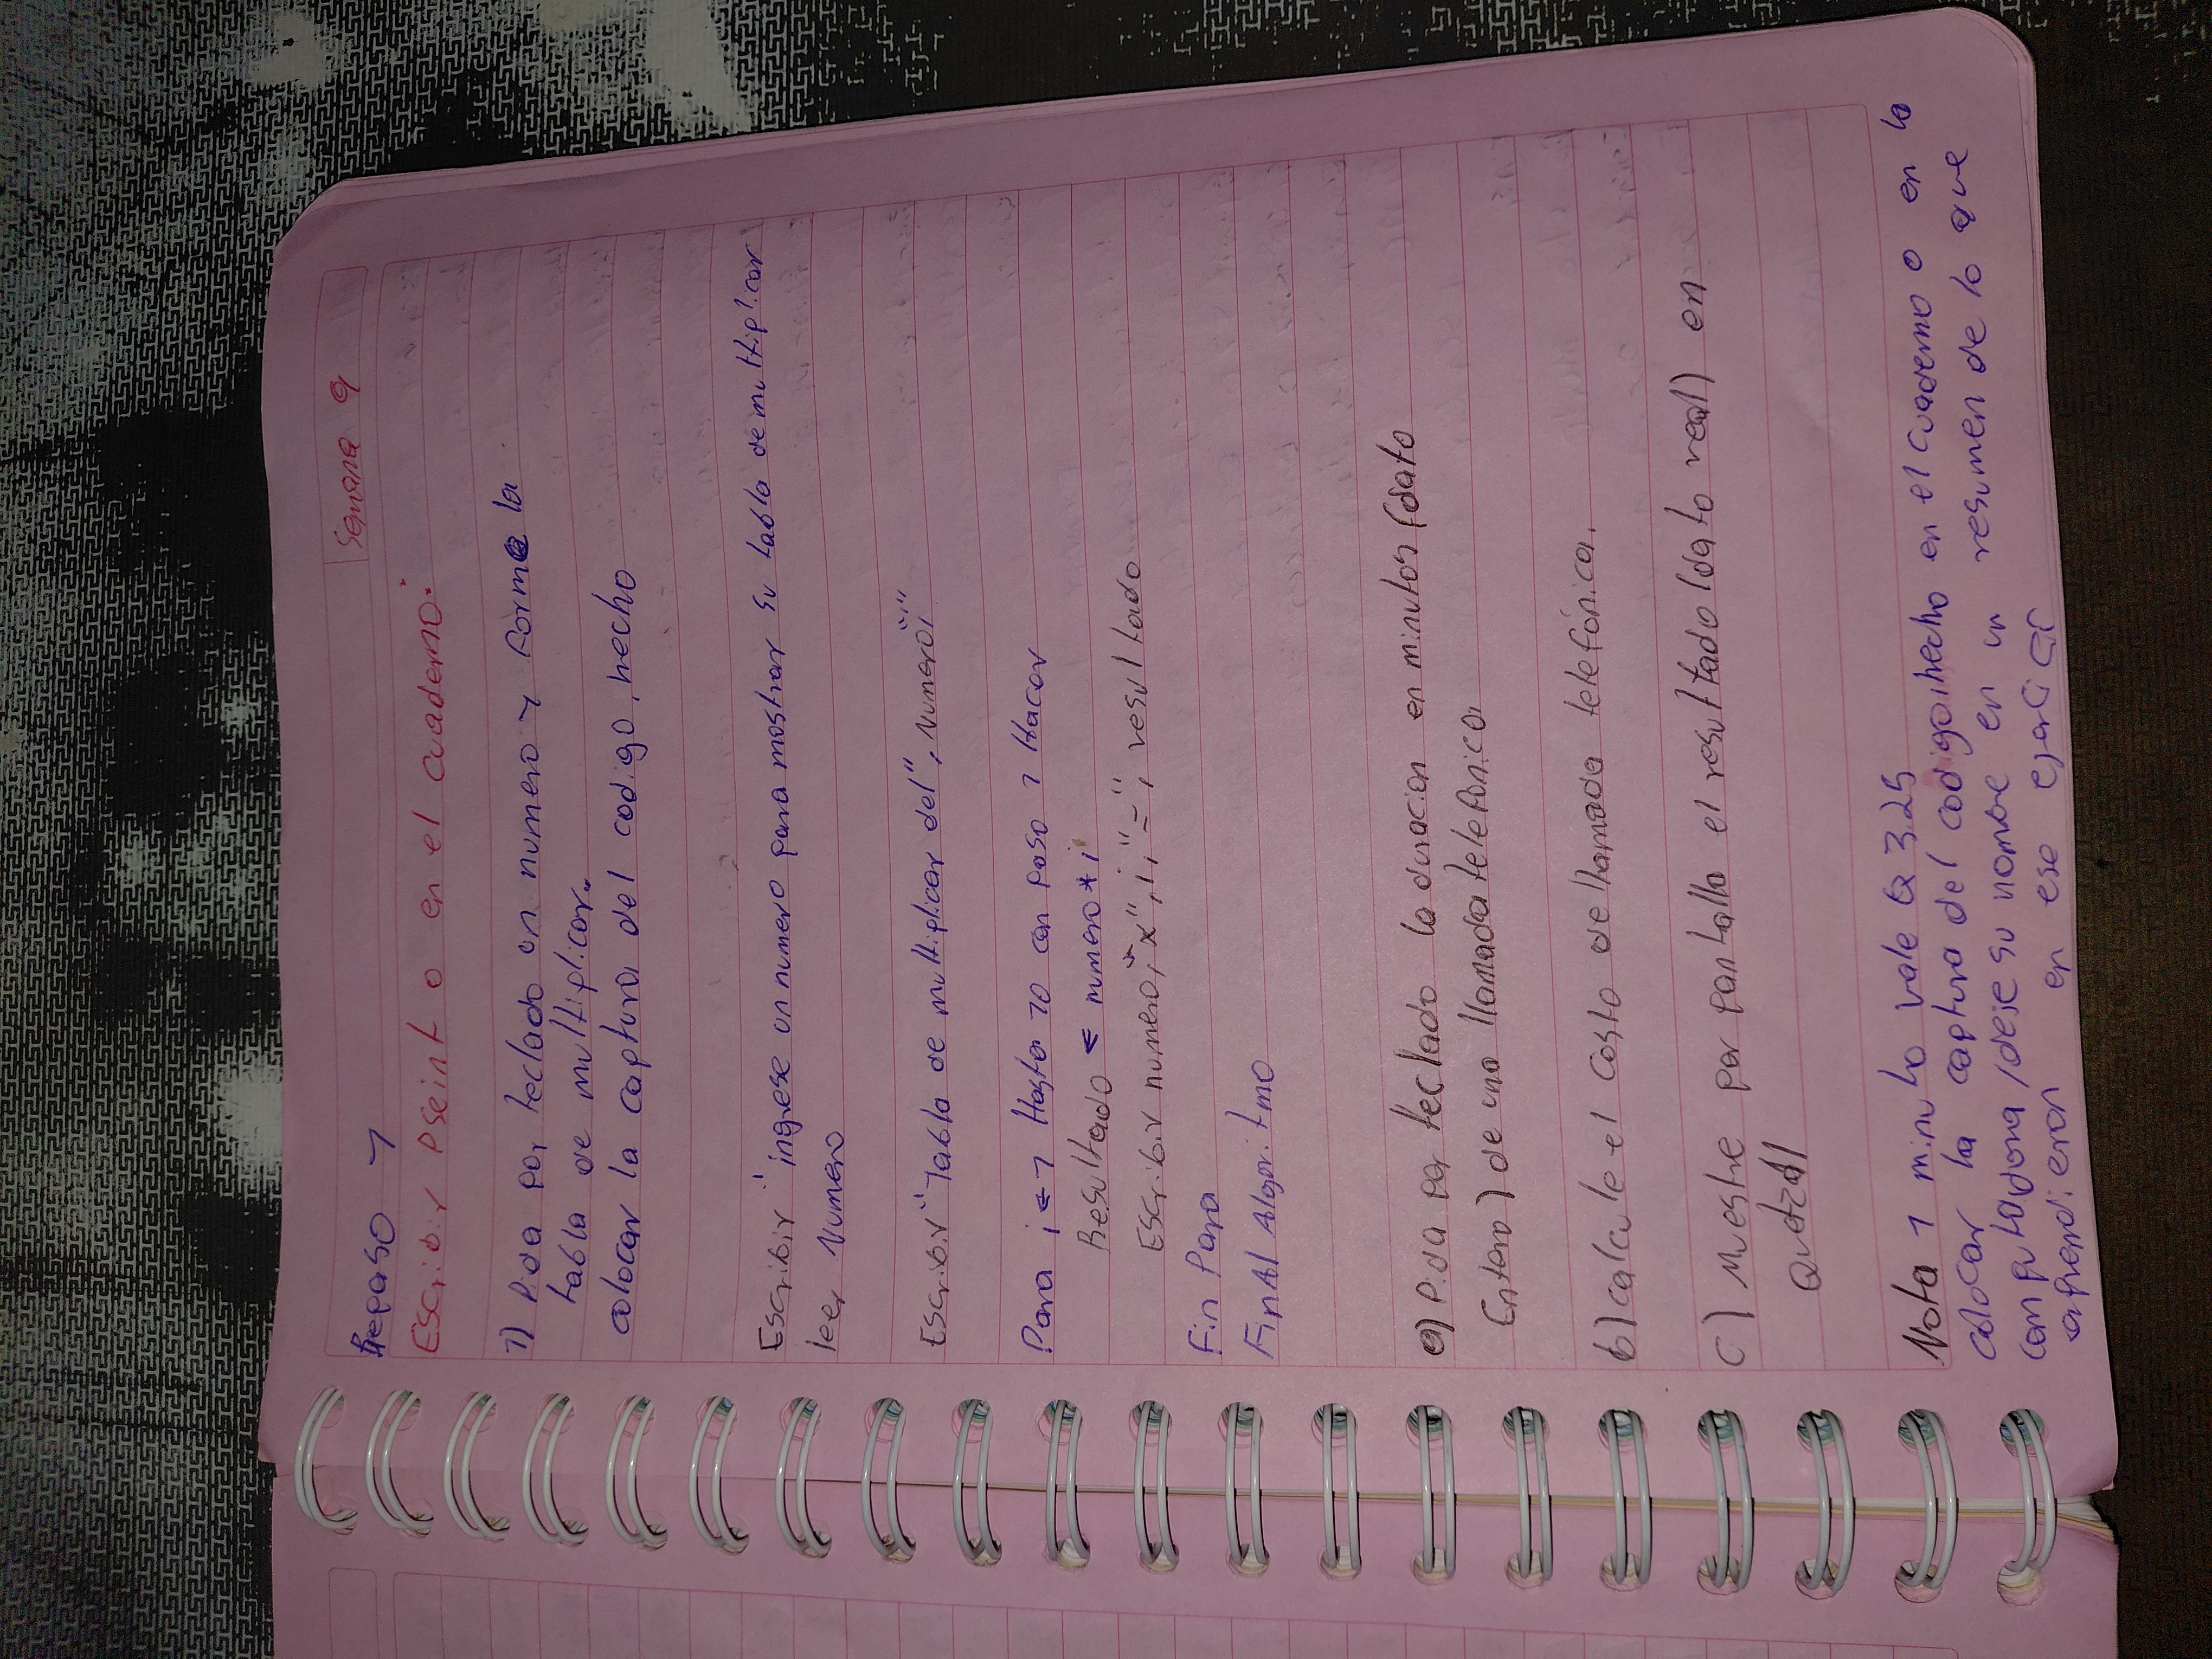 Semana 9
Repaso 1
Escribir Pseint o en el cuaderno:
1) Pida por teclado un numero y forme la
tabla de multiplicar.
colocar la captura del codigo, hecho
Escribir "ingrese un numero para mostrar su tabla de multiplicar
leer Numero
Escribir "Tabla de multiplicar del", Numero ":"
Para i ← 1 Hasta 10 con paso 1 Hacer
Resultado ← numero * i
Escribir numero, "x", i, "=", resultado
Fin Para
FinAl Algoritmo
a) Pida por teclado la duracion en minutos (dato
Entero) de una llamada telefonica
b) calcule el costo de llamada telefónica.
c) Muestre por pantalla el resultado (dato real) en
Quetzal
Nota 1 minuto vale Q 3.25
colocar la captura del codigo, hecho en el cuaderno o en la
computadora /deje su nombre en un resumen de lo que
aprendieron en ese ejercicio